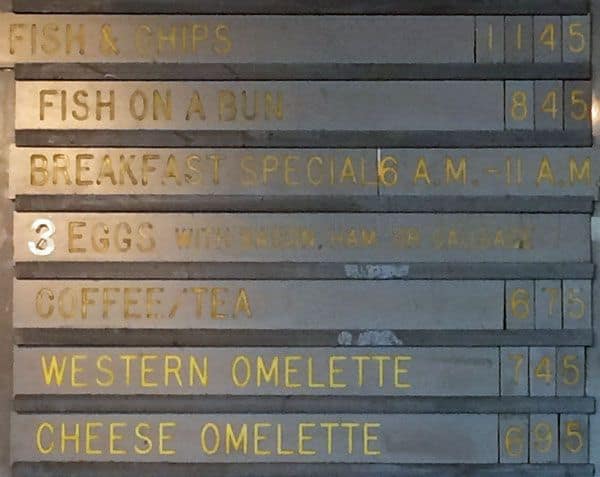 FISH & CHIPS 1145
FISH ON A BUN 845
BREAKFAST SPECIAL 6 A.M.-11 A.M
3 EGGS WITH BACON, HAM OR SAUSAGE
COFFEE/TEA 675
WESTERN OMELETTE 745
CHEESE OMELETTE 695